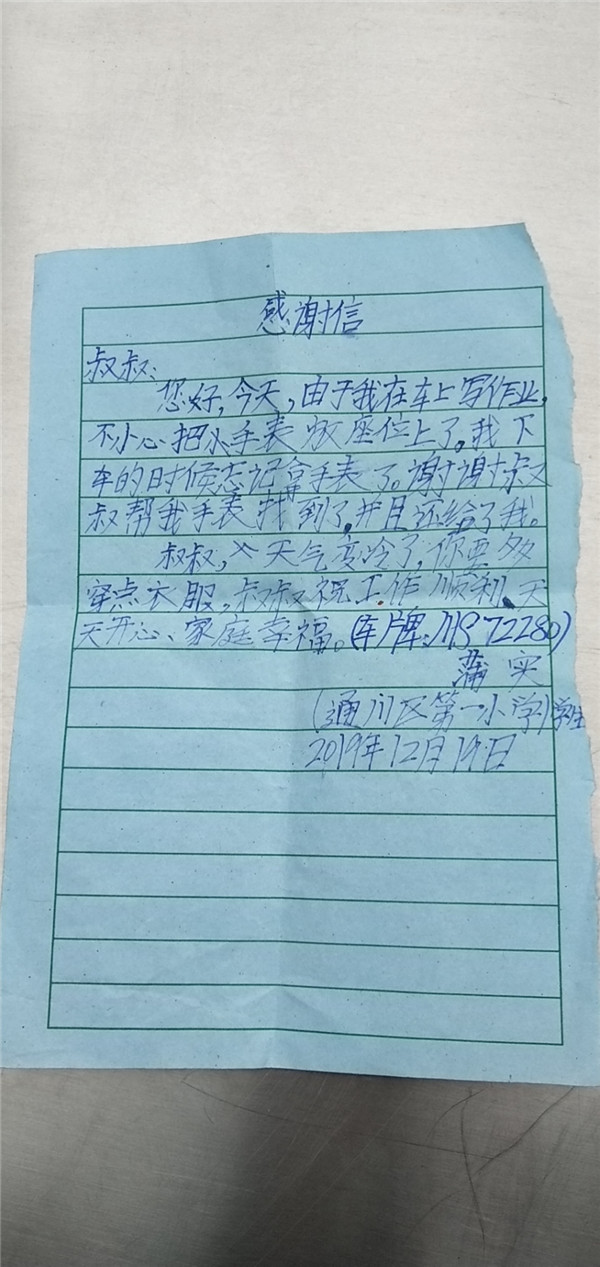 感谢信
叔叔:
您好,今天,由于我在车上写作业,
不小心把小手表放座位上了。我下
车的时候忘记拿手表了。谢谢叔
叔帮我手表找到了,并且还给了我。
叔叔,天气变冷了,你要多
穿点衣服。叔叔祝工作顺利、天
天开心、家庭幸福。(车牌:川S72280)
蒲实
(通川区第一小学)学生
2019年12月19日